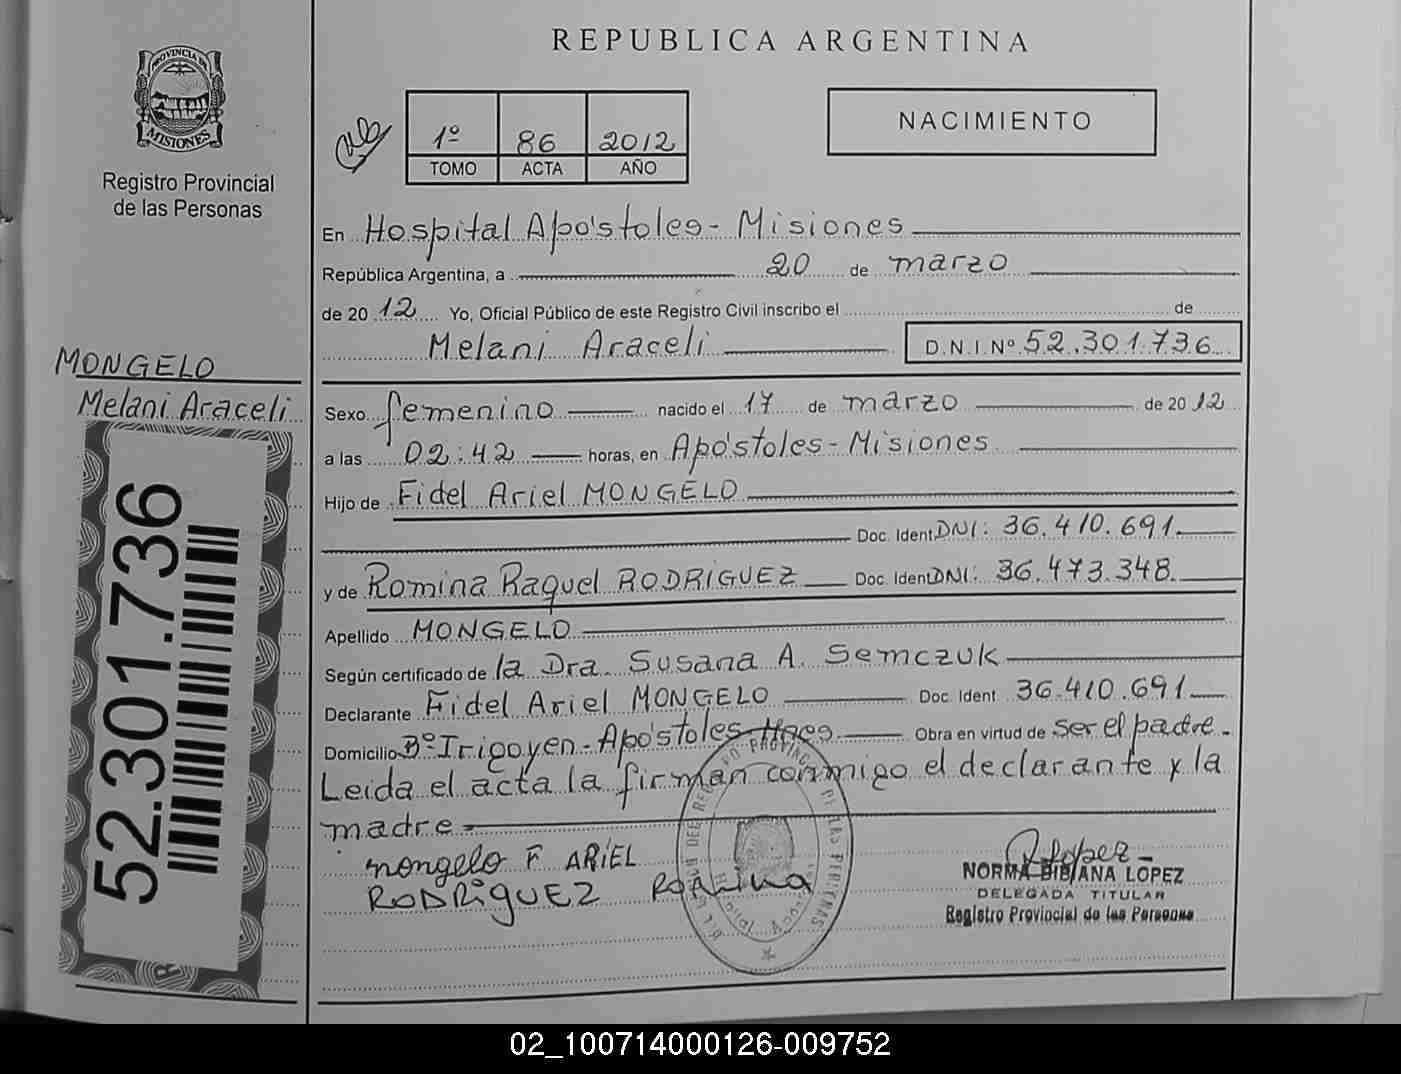 REPUBLICA ARGENTINA
PROVINCIA DE
MISIONES
Registro Provincial
de las Personas
1º 86 2012
TOMO ACTA AÑO
NACIMIENTO
En Hospital Apóstoles - Misiones
República Argentina, a 20 de marzo
de 2012 Yo, Oficial Público de este Registro Civil inscribo el de
Melani Araceli D.N.I. Nº 52.301.736
MONGELO
Melani Araceli
52.301.736
Sexo femenino nacido el 17 de marzo de 2012
a las 02:42 horas, en Apóstoles - Misiones
Hijo de Fidel Ariel MONGELO
Doc. Ident DNI: 36.410.691
y de Romina Raquel RODRIGUEZ Doc. Ident DNI: 36.473.348
Apellido MONGELO
Según certificado de la Dra. Susana A. Semczuk
Declarante Fidel Ariel MONGELO Doc. Ident 36.410.691
Domicilio Bº Irigoyen - Apóstoles Mnes Obra en virtud de ser el padre.
Leida el acta la firman conmigo el declarante y la
madre
mongelo F ARiEL
RODRiguEZ ROMiNa
Rlopez
NORMA BIBIANA LOPEZ
DELEGADA TITULAR
Registro Provincial de las Personas
02_100714000126-009752